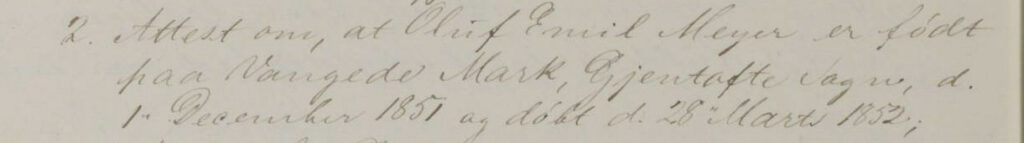 2. Attest om, at Oluf Emil Meyer er født
paa Vangede Mark, Gjentofte Sogn, d.
1" December 1851 og døbt d. 28" Marts 1852;